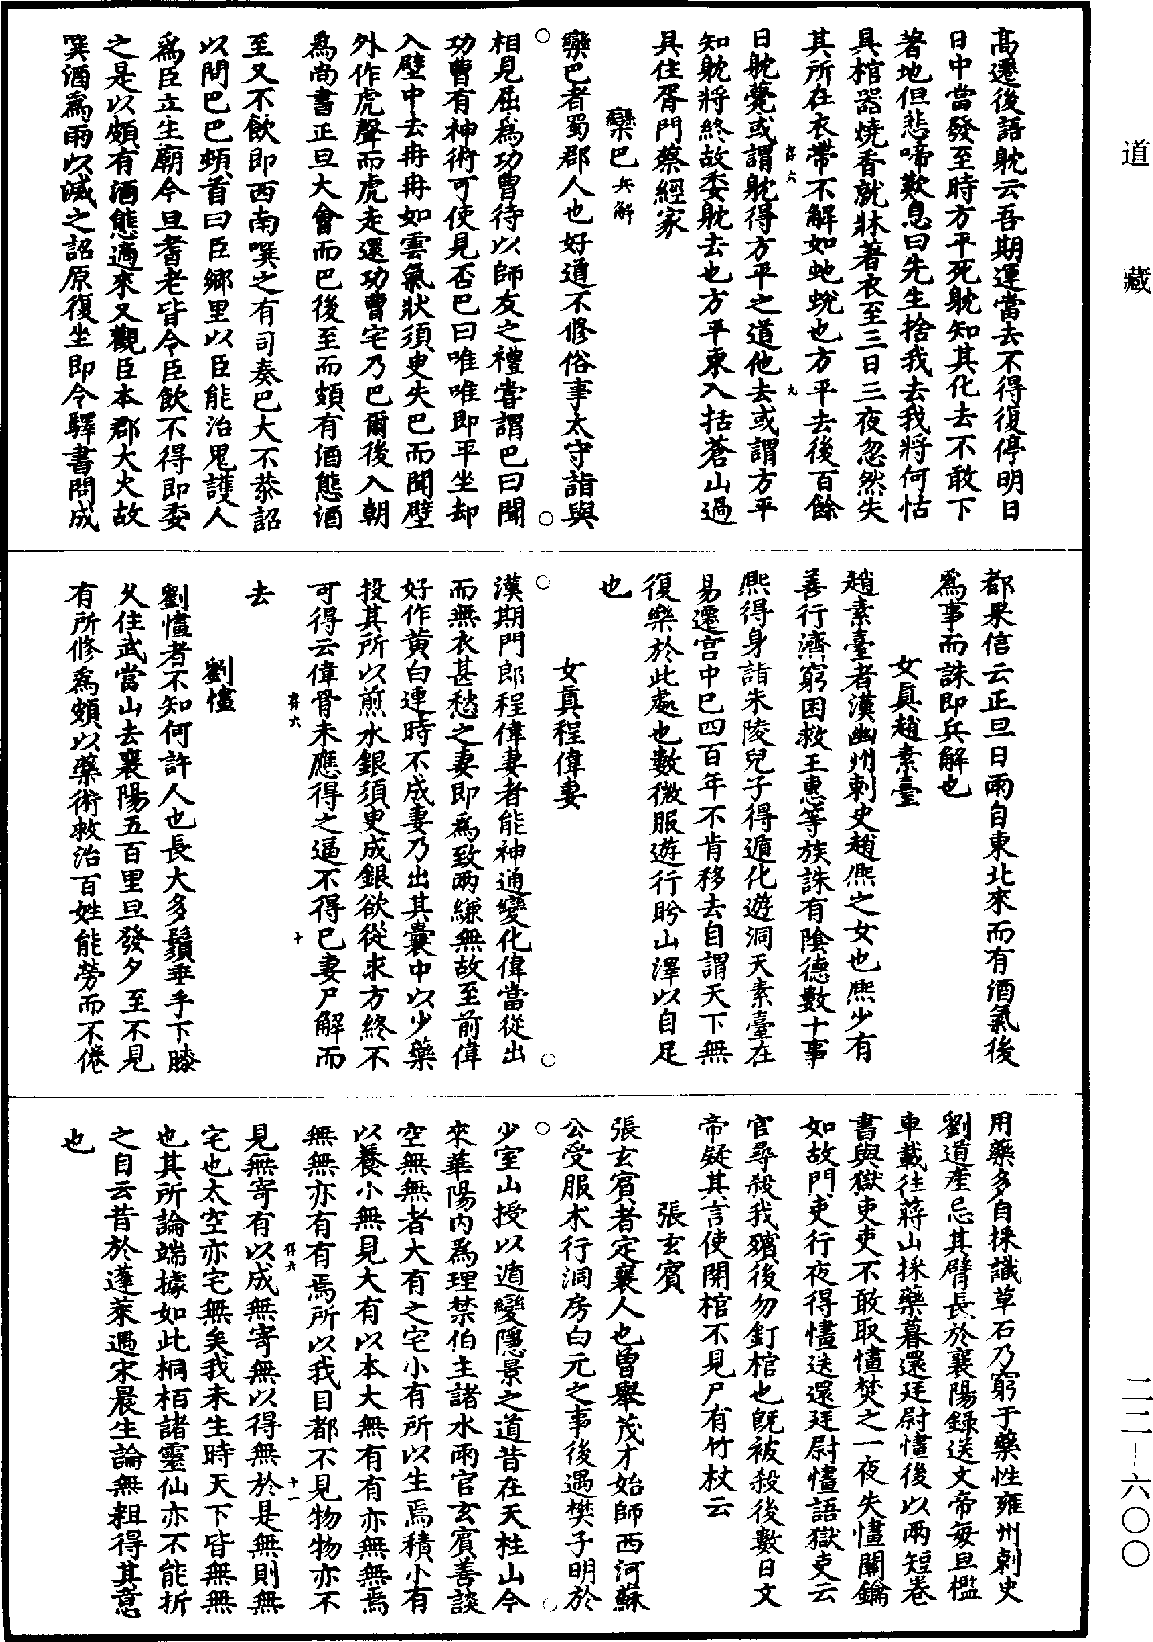 道藏
二二—六〇〇
高遷後語躭云吾期運當去不得復停明日
日中當發至時方平死躭知其化去不敢下
著地但悲啼歎息曰先生捨我去我將何怙
具棺器燒香就牀著衣至三日三夜忽然失
其所在衣帶不解如虵蛻也方平去後百餘
日躭薨或謂躭得方平之道他去或謂方平
知躭將終故委躭去也方平東入括蒼山過
具住胥門蔡經家
欒巴兵解
欒巴者蜀郡人也好道不修俗事太守詣與
相見屈爲功曹待以師友之禮嘗謂巴曰聞
功曹有神術可使見否巴曰唯唯即平坐却
入壁中去冉冉如雲氣狀須臾失巴而聞壁
外作虎聲而虎走還功曹宅乃巴爾後入朝
爲尚書正旦大會而巴後至而頗有酒態酒
至又不飲即西南噀之有司奏巴大不恭詔
以問巴巴頓首曰臣鄉里以臣能治鬼護人
爲臣立生廟今旦耆老皆令臣飲不得即委
之是以頗有酒態適來又觀臣本郡大火故
噀酒爲雨以滅之詔原復坐即令驛書問成
都果信云正旦日雨自東北來而有酒氣後
爲事而誅即兵解也
女眞趙素臺
趙素臺者漢幽州刺史趙熙之女也熙少有
善行濟窮困救王惠等族誅有陰德數十事
熙得身詣朱陵兒子得遁化遊洞天素臺在
易遷宮中已四百年不肯移去自謂天下無
復樂於此處也數微服遊行盻山澤以自足
也
女眞程偉妻
漢期門郎程偉妻者能神通變化偉當從出
而無衣甚愁之妻即爲致兩縑無故至前偉
好作黄白連時不成妻乃出其囊中以少藥
投其所以煎水銀須臾成銀欲從求方終不
可得云偉骨未應得之逼不得已妻尸解而
去
劉㦃
劉㦃者不知何許人也長大多鬚垂手下膝
久住武當山去襄陽五百里旦發夕至不見
有所修爲頗以藥術救治百姓能勞而不倦
用藥多自採識草石乃窮于藥性雍州刺史
劉道產忌其臂長於襄陽錄送文帝每旦檻
車載往蔣山採藥暮還廷尉㦃後以兩短卷
書與獄吏吏不敢取㦃焚之一夜失㦃關鑰
如故門吏行夜得㦃送還廷尉㦃語獄吏云
官尋殺我殯後勿釘棺也旣被殺後數日文
帝疑其言使開棺不見尸有竹杖云
張玄賓
張玄賓者定襄人也曾舉茂才始師西河蘇
公受服朮行洞房白元之事後遇樊子明於
少室山授以遁變隱景之道昔在天柱山今
來華陽内爲理禁伯主諸水雨官玄賓善談
空無無者大有之宅小有所以生焉積小有
以養小無見大有以本大無有有亦無無焉
無無亦有有焉所以我目都不見物物亦不
見無寄有以成無寄無以得無於是無則無
宅也太空亦宅無矣我未生時天下皆無無
也其所論端據如此桐栢諸靈仙亦不能折
之自云昔於蓬萊遇宋晨生論無粗得其意
也